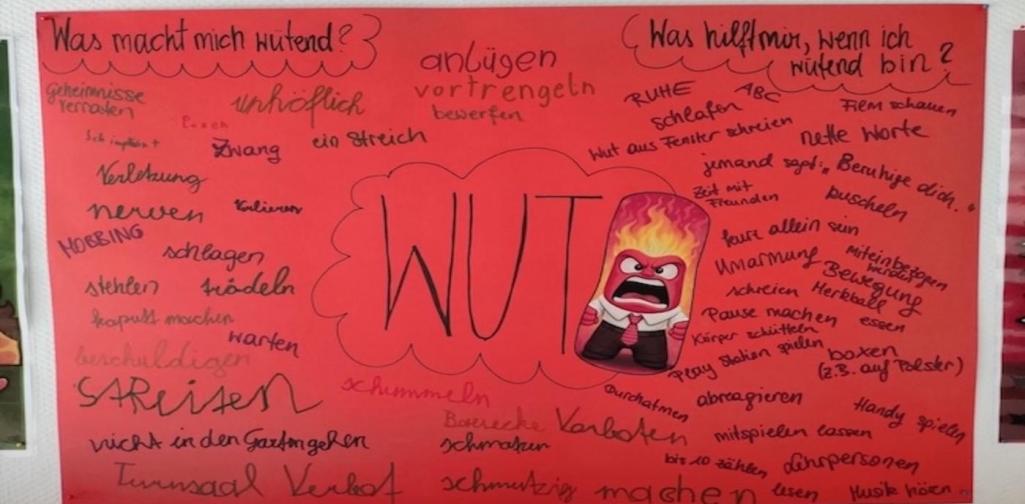 Was macht mich wütend?
Geheimnisse
verraten
unhöflich
Zwang
ein Streich
Verletzung
nerven
verlieren
MOBBING
schlagen
stehlen
trödeln
kaputt machen
warten
beschuldigen
STReiTEN
nicht in den Garten gehen
Turnsaal Verbot
anlügen
vortrengeln
bewerfen
WUT
schummeln
Bauecke Verboten
schmatzen
schmutzig machen
Was hilft mir, wenn ich
wütend bin?
RUHE
ABC
Film schauen
schlafen
Wut aus Fenster schreien
nette Worte
jemand sagt: „Beruhige dich."
Zeit mit
Freunden
kuscheln
kurz allein sein
Umarmung
miteinbezogen
werden
Bewegung
schreien
Herkball
Pause machen
essen
Körper schütteln
Play Station spielen
boxen
(z.B. auf Polster)
Durchatmen
abreagieren
Handy spielen
mitspielen lassen
bis 10 zählen
Lehrpersonen
lesen
Musik hören